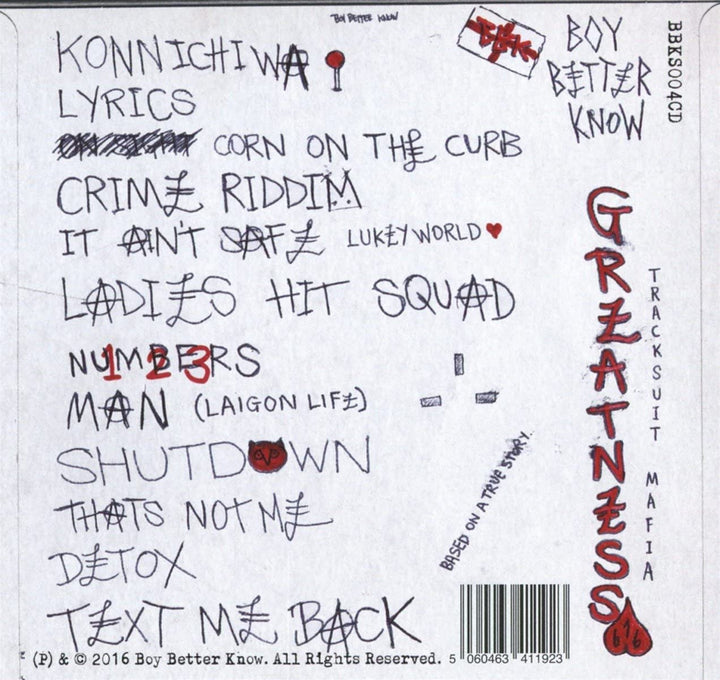 BOY BETTER KNOW
KONNICHIWA
LYRICS
CORN ON THE CURB
CRIME RIDDIM
IT AIN'T SAFE LUKEYWORLD
LADIES HIT SQUAD
NUMBERS
123
MAN (LAIGON LIFE)
SHUTDOWN
THATS NOT ME
DETOX
TEXT ME BACK
BOY
BETTER
KNOW
BBKS004CD
GREATNESS
616
TRACKSUIT MAFIA
BASED ON A TRUE STORY.
(P) & © 2016 Boy Better Know. All Rights Reserved.
5 060463 411923